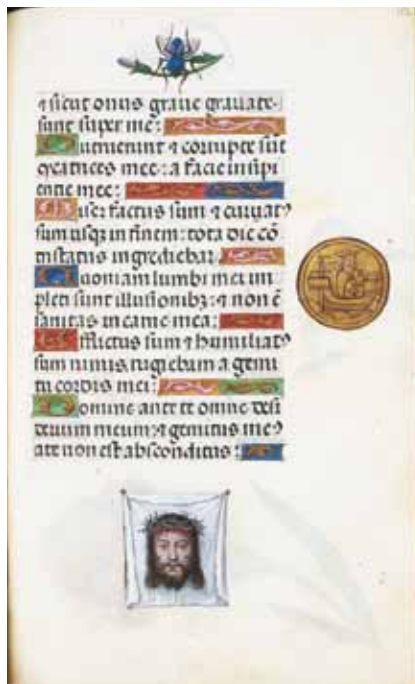 ⁊ sicut onus graue grauate
sunt super me:
Putruerunt ⁊ corrupte sūt
cicatrices mee: a facie insipi
entie mee:
Miser factus sum ⁊ curuatꝰ
sum usqꝫ in finem: tota die cō
tristatus ingrediebar.
Quoniam lumbi mei im
pleti sunt illusionibꝫ: ⁊ non ē
sanitas in carne mea:
Afflictus sum ⁊ humiliatꝰ
sum nimis rugiebam a gemi
tu cordis mei:
Domine ante te omne desi
derium meum: ⁊ gemitus meꝰ
a te non est absconditus: